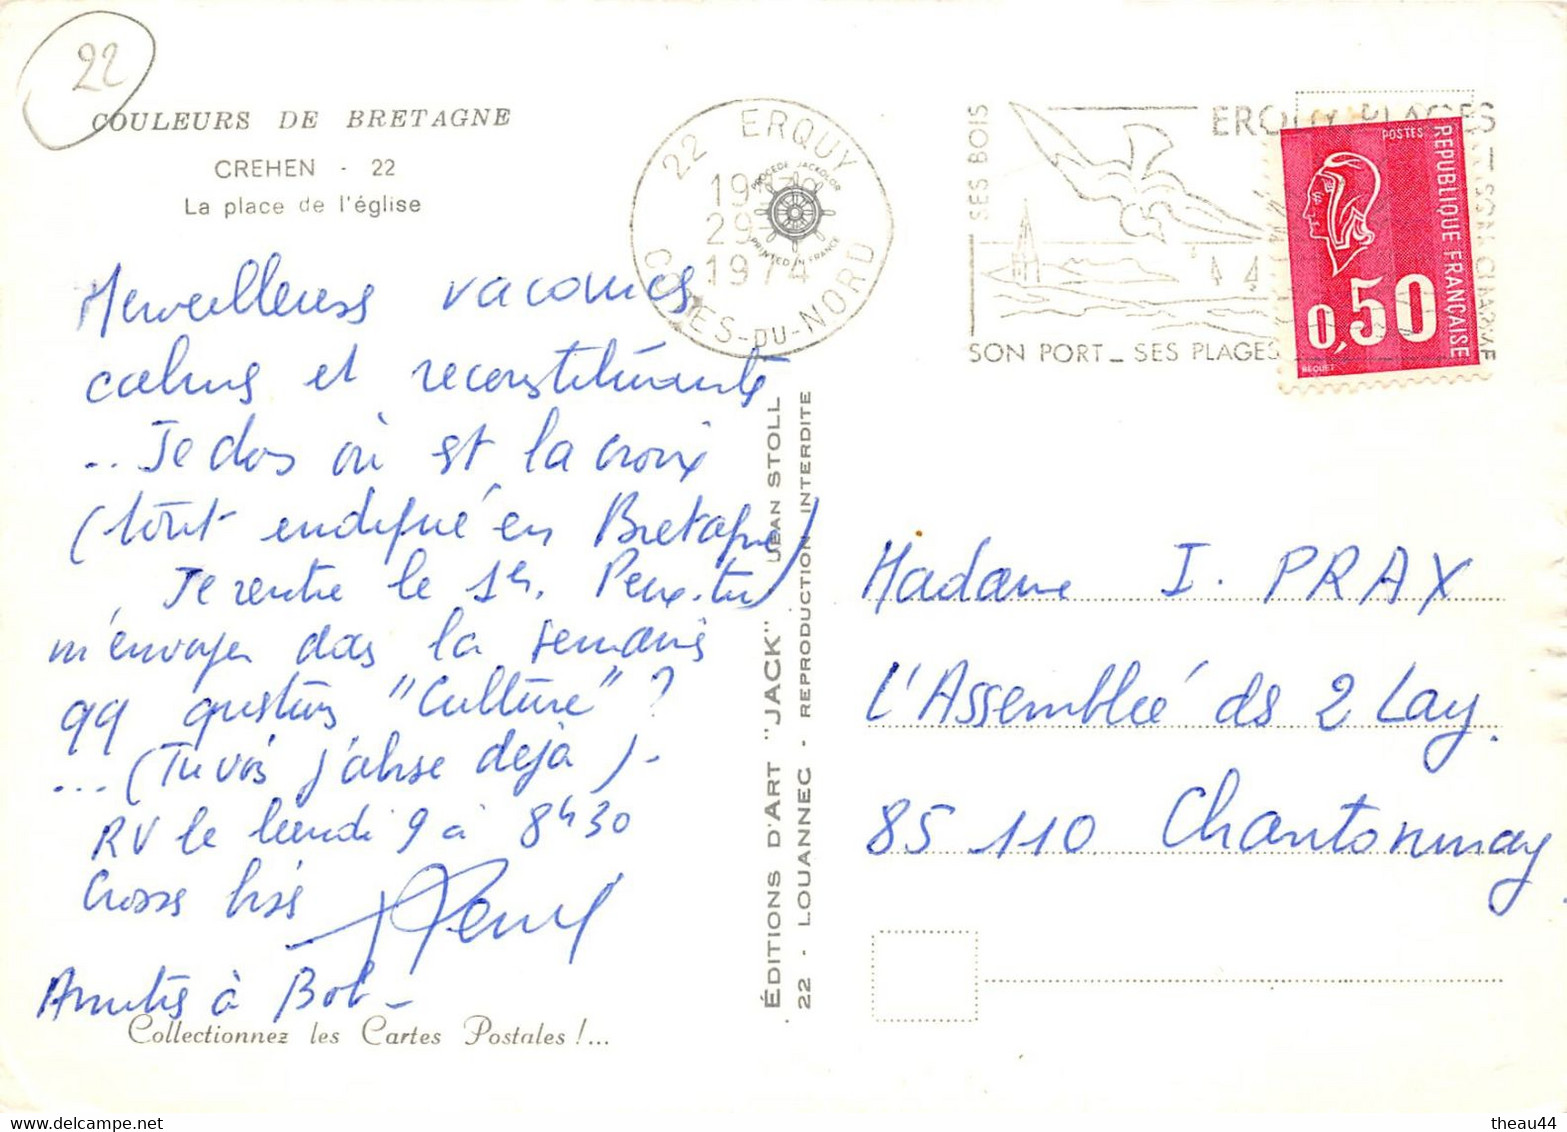 22
COULEURS DE BRETAGNE
CREHEN - 22
La place de l'église
Merveilleuses vacances
calmes et reconstituantes
.. Je dors où est la croix
(tout endigué en Bretagne)
Je rentre le 1er. Peux-tu
m'envoyer dans la semaine
qq questions "Culture" ?
... (Tu vois j'abuse déjà) -
RV le lundi 9 à 8h30
Grosses bises
Amitiés à Bob -
Collectionnez les Cartes Postales !...
22 ERQUY
29
1974
COTES-DU-NORD
PROCEDE JACKOLOR
PRINTED IN FRANCE
SES BOIS
ERQUY PLAGES
SON PORT _ SES PLAGES
SON CHARME
POSTES
REPUBLIQUE FRANÇAISE
0,50
BEQUET
ÉDITIONS D'ART "JACK" JEAN STOLL
22 - LOUANNEC - REPRODUCTION INTERDITE
Madame I. PRAX
L'Assemblée ds 2 Lay.
85 110 Chantonnay
theau44